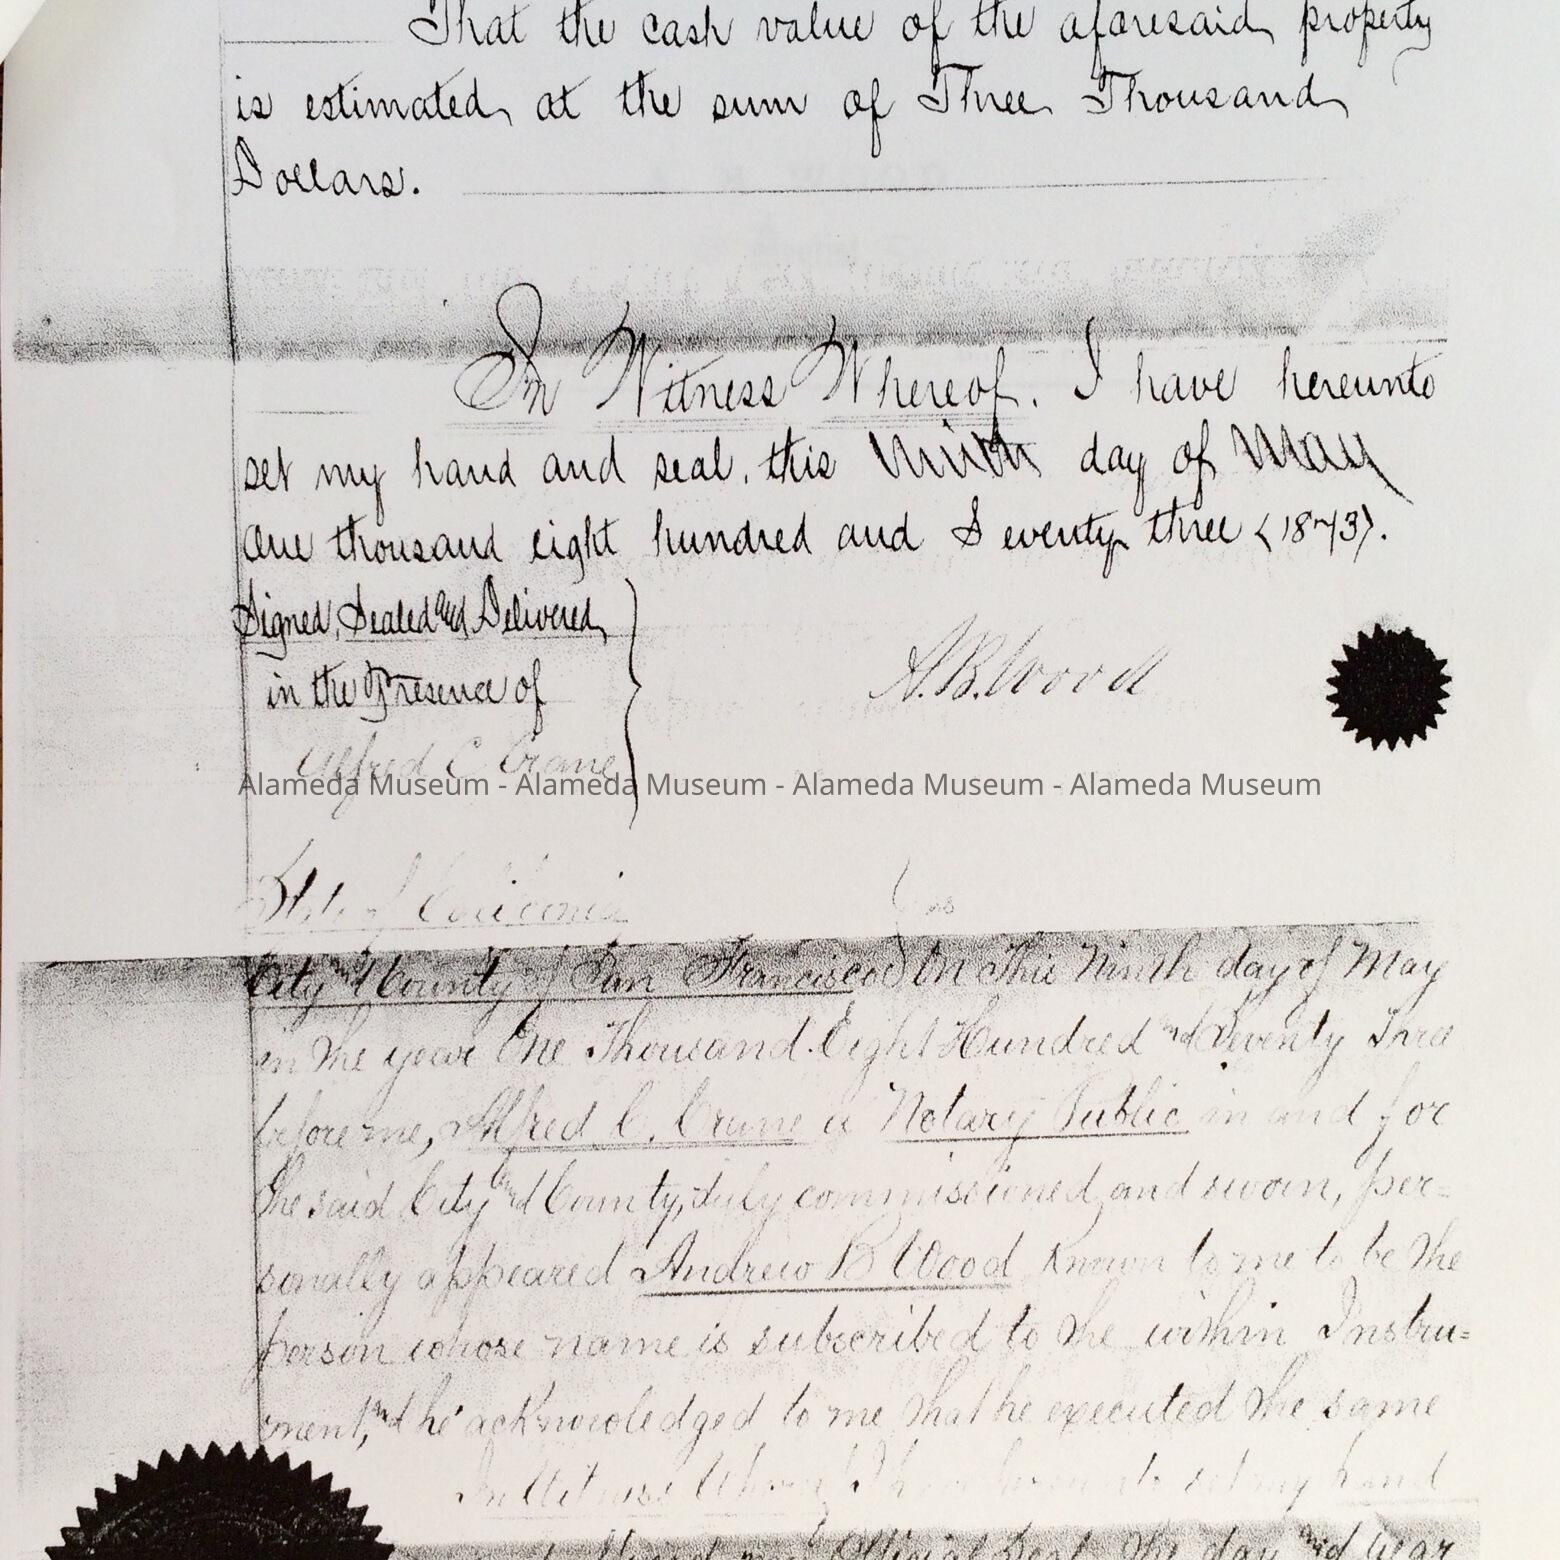 That the cash value of the aforesaid property
is estimated at the sum of Three Thousand
Dollars.
In Witness Whereof. I have hereunto
set my hand and seal, this Ninth day of May
One thousand eight hundred and Seventy three (1873).
Signed, Sealed and Delivered
in the Presence of
A.B. Wood
Alfred C Crane
Alameda Museum - Alameda Museum - Alameda Museum - Alameda Museum
State of California
City and County of San Francisco On This Ninth day of May
in the year One Thousand Eight Hundred and Seventy Three
before me, Alfred C. Crane a Notary Public in and for
the said City and County, duly commissioned and sworn, per=
sonally appeared Andrew B Wood Known to me to be the
person whose name is subscribed to the within Instru=
ment, and he acknowledged to me that he executed the same
In Witness Whereof I have hereunto set my hand
Official Seal the day and Year